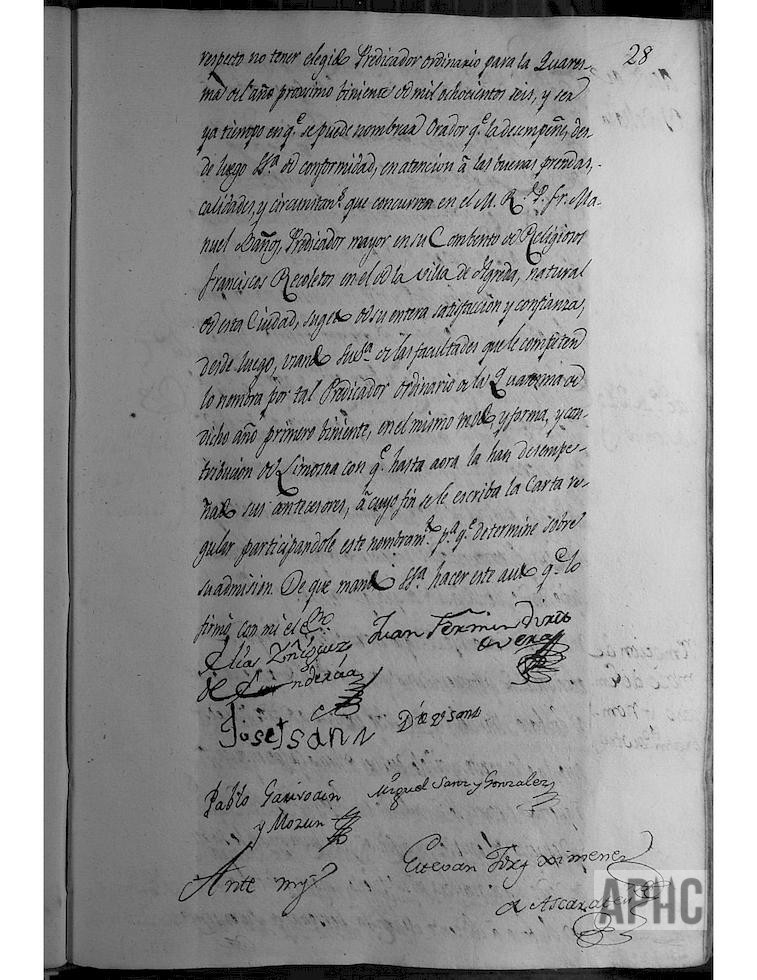 28
respecto no tener elegido Predicador ordinario para la Quares-
ma del año proximo biniente de mil ochocientos seis, y ser
ya tiempo en q.e se puede nombrar Orador q.e la desempeñe, des
de luego S.Sa de conformidad, en atencion à las buenas prendas,
calidades, y circunstan.s que concurren en el M. R. P. fr. Ma-
nuel Baños, Predicador mayor en su Combento de Religiosos
franciscos Recoletos en el de la villa de Agreda, natural
de esta Ciudad, sugeto de su entera satisfaccion y confianza,
desde luego, usando Su S.a de las facultades que le competen
lo nombra por tal Predicador ordinario de la Quaresma de
dicho año primero biniente, en el mismo modo y forma, y con-
tribucion de Limosna con q.e hasta aora la han desempe-
ñado sus antecesores, à cuyo fin se le escriba la Carta re-
gular participandole este nombram.to p.a q.e determine sobre
su admision. De que mandó S.Sa hacer este auto q.e lo
firmó con mi el Es.no
Elias Yñiguez Juan Fermin
de
Josef sanz Diez y sanz
Pablo Garvoain Miguel Sanz y Gonzalez
y Mozun
Ante my Estevan Ximenez
de Ascarate
APHC